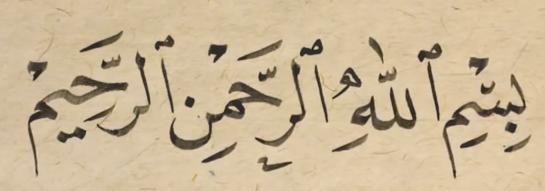 بِسْمِ ٱللَّهِ ٱلرَّحْمَٰنِ ٱلرَّحِيمْ